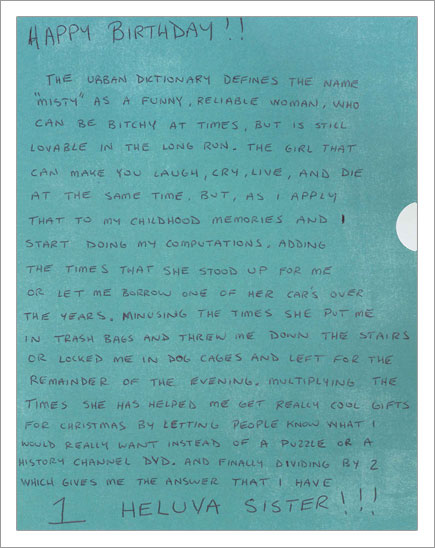 HAPPY BIRTHDAY!!
THE URBAN DICTIONARY DEFINES THE NAME
"MISTY" AS A FUNNY, RELIABLE WOMAN, WHO
CAN BE BITCHY AT TIMES, BUT IS STILL
LOVABLE IN THE LONG RUN. THE GIRL THAT
CAN MAKE YOU LAUGH, CRY, LIVE, AND DIE
AT THE SAME TIME. BUT, AS I APPLY
THAT TO MY CHILDHOOD MEMORIES AND I
START DOING MY COMPUTATIONS, ADDING
THE TIMES THAT SHE STOOD UP FOR ME
OR LET ME BORROW ONE OF HER CAR'S OVER
THE YEARS. MINUSING THE TIMES SHE PUT ME
IN TRASH BAGS AND THREW ME DOWN THE STAIRS
OR LOCKED ME IN DOG CAGES AND LEFT FOR THE
REMAINDER OF THE EVENING. MULTIPLYING THE
TIMES SHE HAS HELPED ME GET REALLY COOL GIFTS
FOR CHRISTMAS BY LETTING PEOPLE KNOW WHAT I
WOULD REALLY WANT INSTEAD OF A PUZZLE OR A
HISTORY CHANNEL DVD. AND FINALLY DIVIDING BY 2
WHICH GIVES ME THE ANSWER THAT I HAVE
1 HELUVA SISTER!!!